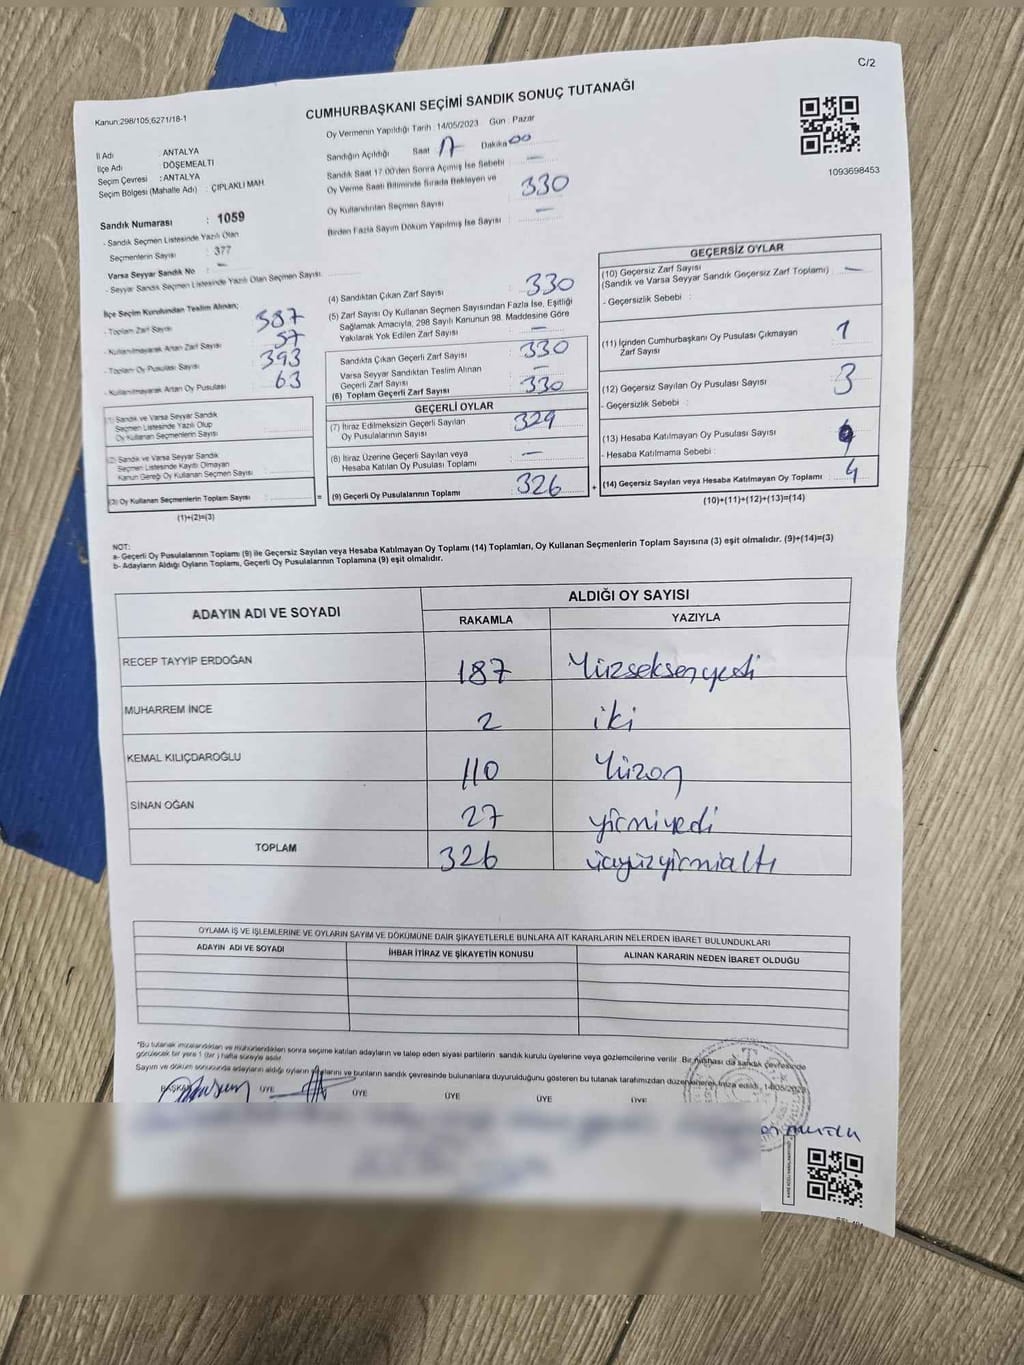 C/2
Kanun:298/105;6271/18-1
CUMHURBAŞKANI SEÇİMİ SANDIK SONUÇ TUTANAĞI
1093698453
İl Adı : ANTALYA
İlçe Adı : DÖŞEMEALTI
Seçim Çevresi : ANTALYA
Seçim Bölgesi (Mahalle Adı) : ÇIPLAKLI MAH
Oy Vermenin Yapıldığı Tarih :14/05/2023 Gün : Pazar
Sandığın Açıldığı Saat 17 Dakika 00
Sandık Saat 17:00'den Sonra Açılmış İse Sebebi : —
Oy Verme Saati Bitiminde Sırada Bekleyen ve
Oy Kullandırılan Seçmen Sayısı : 330
Birden Fazla Sayım Döküm Yapılmış İse Sayısı : —
Sandık Numarası : 1059
- Sandık Seçmen Listesinde Yazılı Olan
Seçmenlerin Sayısı : 377
Varsa Seyyar Sandık No : —
- Seyyar Sandık Seçmen Listesinde Yazılı Olan Seçmen Sayısı
İlçe Seçim Kurulundan Teslim Alınan;
- Toplam Zarf Sayısı : 387
- Kullanılmayarak Artan Zarf Sayısı : 57
- Toplam Oy Pusulası Sayısı : 393
- Kullanılmayarak Artan Oy Pusulası : 63
(1) Sandık ve Varsa Seyyar Sandık
Seçmen Listesinde Yazılı Olup
Oy Kullanan Seçmenlerin Sayısı
(2) Sandık ve Varsa Seyyar Sandık
Seçmen Listesinde Kayıtlı Olmayan
Kanun Gereği Oy Kullanan Seçmen Sayısı
(3) Oy Kullanan Seçmenlerin Toplam Sayısı :
(1)+(2)=(3)
(4) Sandıktan Çıkan Zarf Sayısı : 330
(5) Zarf Sayısı Oy Kullanan Seçmen Sayısından Fazla İse, Eşitliği
Sağlamak Amacıyla, 298 Sayılı Kanunun 98. Maddesine Göre
Yakılarak Yok Edilen Zarf Sayısı : —
Sandıkta Çıkan Geçerli Zarf Sayısı : 330
Varsa Seyyar Sandıktan Teslim Alınan
Geçerli Zarf Sayısı : —
(6) Toplam Geçerli Zarf Sayısı : 330
GEÇERLİ OYLAR
(7) İtiraz Edilmeksizin Geçerli Sayılan
Oy Pusulalarının Sayısı : 329
(8) İtiraz Üzerine Geçerli Sayılan veya
Hesaba Katılan Oy Pusulası Toplamı : —
(9) Geçerli Oy Pusulalarının Toplamı : 326
GEÇERSİZ OYLAR
(10) Geçersiz Zarf Sayısı
(Sandık ve Varsa Seyyar Sandık Geçersiz Zarf Toplamı) : —
- Geçersizlik Sebebi :
(11) İçinden Cumhurbaşkanı Oy Pusulası Çıkmayan
Zarf Sayısı : 1
(12) Geçersiz Sayılan Oy Pusulası Sayısı : 3
- Geçersizlik Sebebi :
(13) Hesaba Katılmayan Oy Pusulası Sayısı :
- Hesaba Katılmama Sebebi :
(14) Geçersiz Sayılan veya Hesaba Katılmayan Oy Toplamı : 4
(10)+(11)+(12)+(13)=(14)
NOT:
a- Geçerli Oy Pusulalarının Toplamı (9) ile Geçersiz Sayılan veya Hesaba Katılmayan Oy Toplamı (14) Toplamları, Oy Kullanan Seçmenlerin Toplam Sayısına (3) eşit olmalıdır. (9)+(14)=(3)
b- Adayların Aldığı Oyların Toplamı, Geçerli Oy Pusulalarının Toplamına (9) eşit olmalıdır.
ADAYIN ADI VE SOYADI
ALDIĞI OY SAYISI
RAKAMLA YAZIYLA
RECEP TAYYİP ERDOĞAN 187 Yüzseksenyedi
MUHARREM İNCE 2 iki
KEMAL KILIÇDAROĞLU 110 Yüzon
SİNAN OĞAN 27 yirmiyedi
TOPLAM 326 üçyüzyirmialtı
OYLAMA İŞ VE İŞLEMLERİNE VE OYLARIN SAYIM VE DÖKÜMÜNE DAİR ŞİKAYETLERLE BUNLARA AİT KARARLARIN NELERDEN İBARET BULUNDUKLARI
ADAYIN ADI VE SOYADI İHBAR İTİRAZ VE ŞİKAYETİN KONUSU ALINAN KARARIN NEDEN İBARET OLDUĞU
*Bu tutanak imzalandıktan ve mühürlendikten sonra seçime katılan adayların ve talep eden siyasi partilerin sandık kurulu üyelerine veya gözlemcilerine verilir. Bir nüshası da sandık çevresinde
görülecek bir yere 1 (bir) hafta süreyle asılır.
Sayım ve döküm sonucunda adayların aldığı oyların ve bunların sandık çevresinde bulunanlara duyurulduğunu gösteren bu tutanak tarafımızdan düzenlenerek imza edildi.
BAŞKAN ÜYE ÜYE ÜYE ÜYE ÜYE